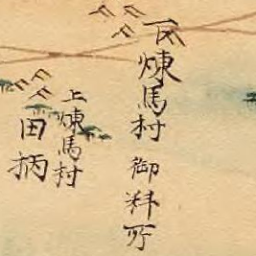 下煉馬村 御料所
上煉馬村
田柄